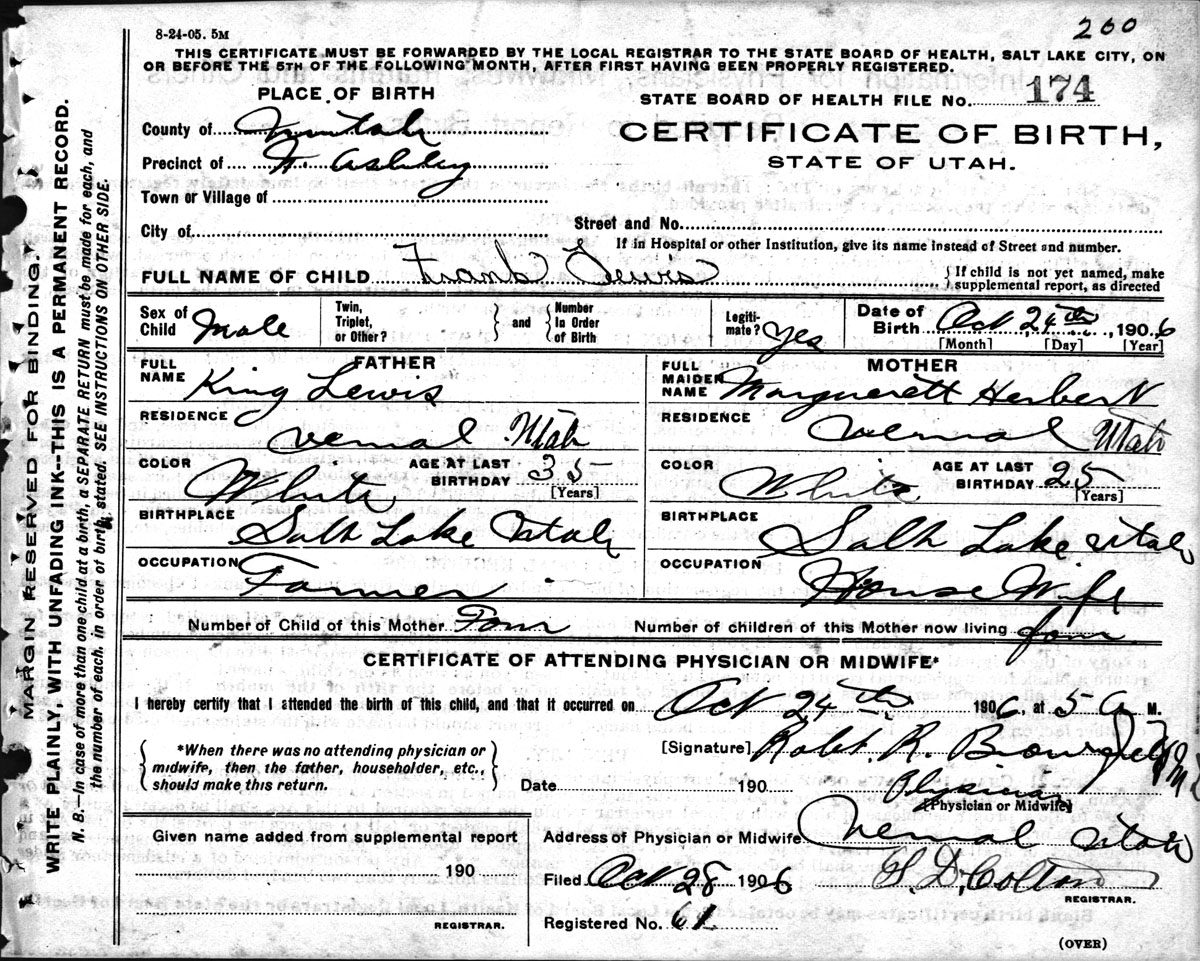 200
8-24-05. 5M
THIS CERTIFICATE MUST BE FORWARDED BY THE LOCAL REGISTRAR TO THE STATE BOARD OF HEALTH, SALT LAKE CITY, ON
OR BEFORE THE 5TH OF THE FOLLOWING MONTH, AFTER FIRST HAVING BEEN PROPERLY REGISTERED.
MARGIN RESERVED FOR BINDING.
WRITE PLAINLY, WITH UNFADING INK--THIS IS A PERMANENT RECORD.
N. B.--In case of more than one child at a birth, a SEPARATE RETURN must be made for each, and
the number of each, in order of birth, stated. SEE INSTRUCTIONS ON OTHER SIDE.
PLACE OF BIRTH
STATE BOARD OF HEALTH FILE No. 174
County of Uintah
CERTIFICATE OF BIRTH,
Precinct of Ashley
STATE OF UTAH.
Town or Village of
City of
Street and No.
If in Hospital or other Institution, give its name instead of Street and number.
FULL NAME OF CHILD Frank Lewis
{If child is not yet named, make
supplemental report, as directed
Sex of Child Male
Twin, Triplet, or Other? } and { Number In Order of Birth
Legiti-mate? Yes
Date of Birth Oct 24th, 1906
[Month] [Day] [Year]
FATHER
FULL NAME King Lewis
RESIDENCE Vernal Utah
COLOR White
AGE AT LAST BIRTHDAY 35
[Years]
BIRTHPLACE Salt Lake Utah
OCCUPATION Farmer
MOTHER
FULL MAIDEN NAME Marguerett Herbert
RESIDENCE Vernal Utah
COLOR White
AGE AT LAST BIRTHDAY 25
[Years]
BIRTHPLACE Salt Lake Utah
OCCUPATION House Wife
Number of Child of this Mother Four
Number of children of this Mother now living four
CERTIFICATE OF ATTENDING PHYSICIAN OR MIDWIFE*
I hereby certify that I attended the birth of this child, and that it occurred on Oct 24th 1906, at 5 A M.
{ *When there was no attending physician or
midwife, then the father, householder, etc.,
should make this return. }
[Signature] Robt. R.
Date 190
Physician
[Physician or Midwife]
Given name added from supplemental report
190
REGISTRAR.
Address of Physician or Midwife Vernal Utah
Filed Oct 28 1906 S. D. Colton
REGISTRAR.
Registered No. 61
(OVER)